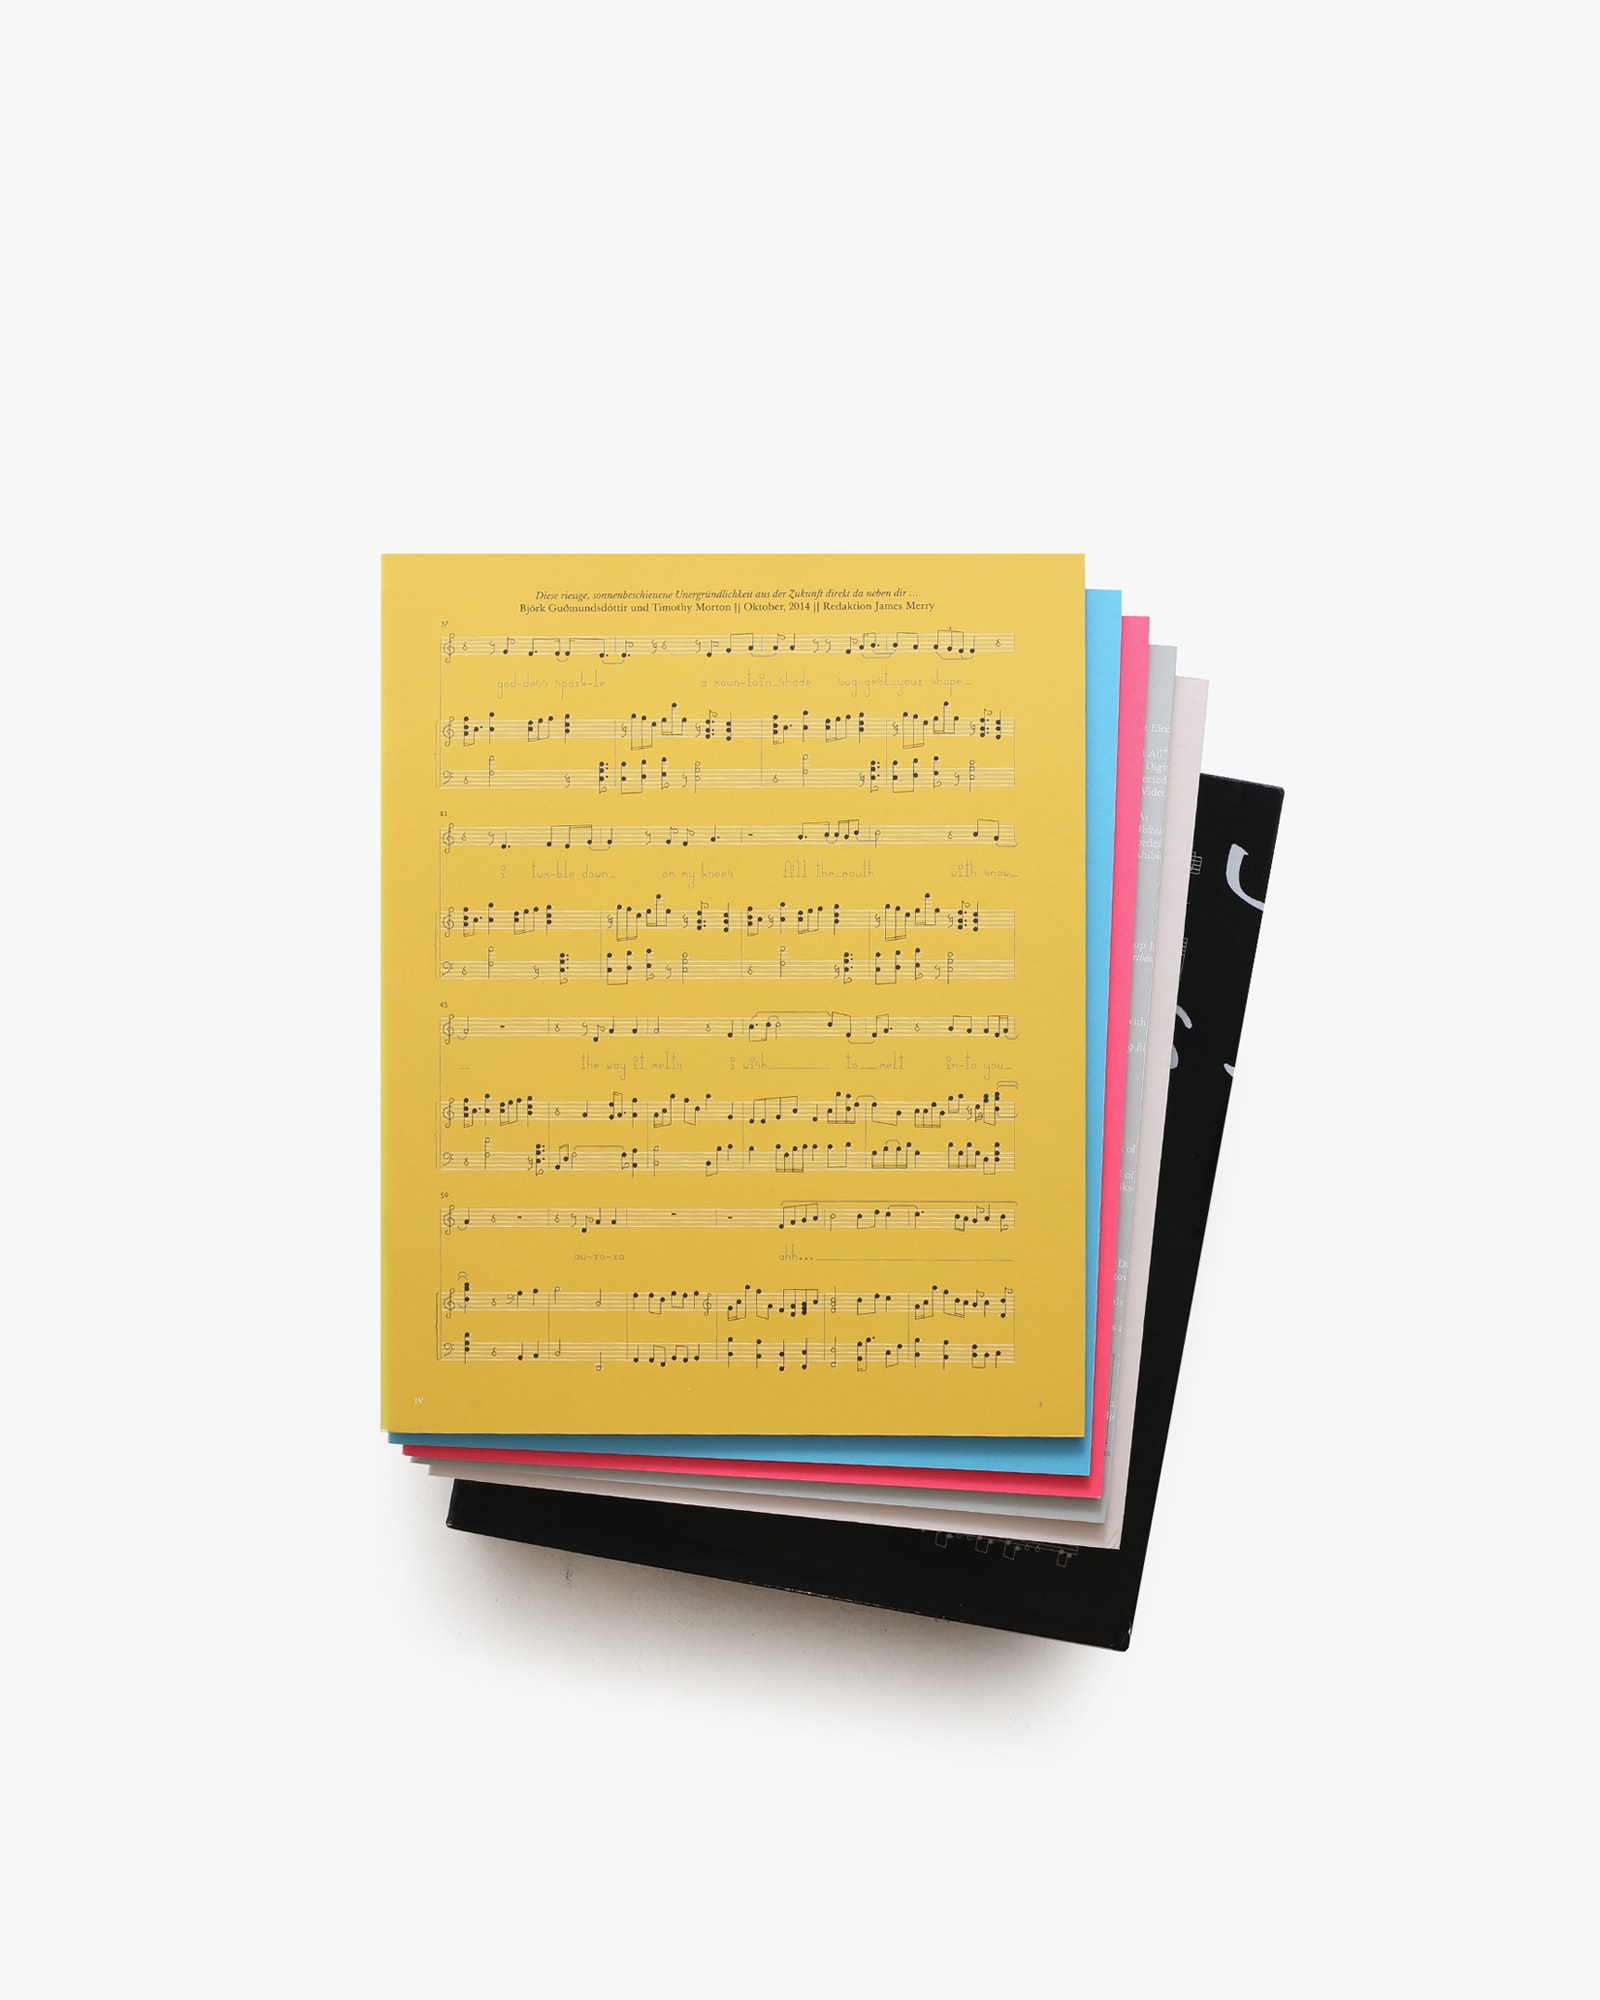 Diese riesige, sonnenbeschienene Unergründlichkeit aus der Zukunft direkt da neben dir ...
Björk Guðmundsdóttir und Timothy Morton || Oktober, 2014 || Redaktion James Merry
37
god-dess spark-le a moun-tain_shade sug-gest_your shape_
41
i tum-ble down_ on my knees fill the_mouth with snow_
45
_ the way it melts i wish_ to_melt in-to you_
50
au-ro-ra ahh...
IV 3
Elec
All"
Digi
ected
Video
As
Volta
order
xhibi
up M
with
9 fil
of
of